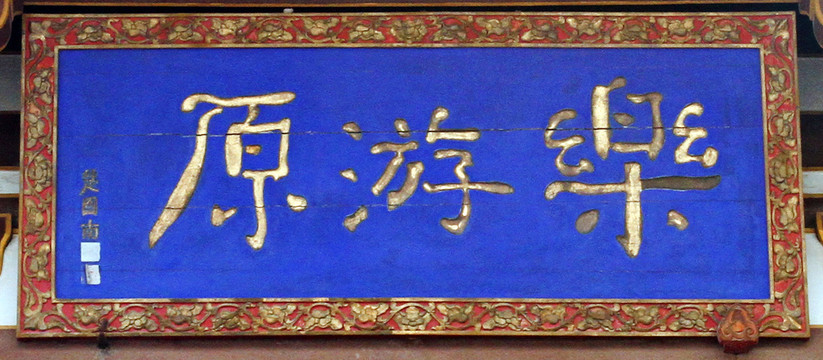 樂游原
楚圖南